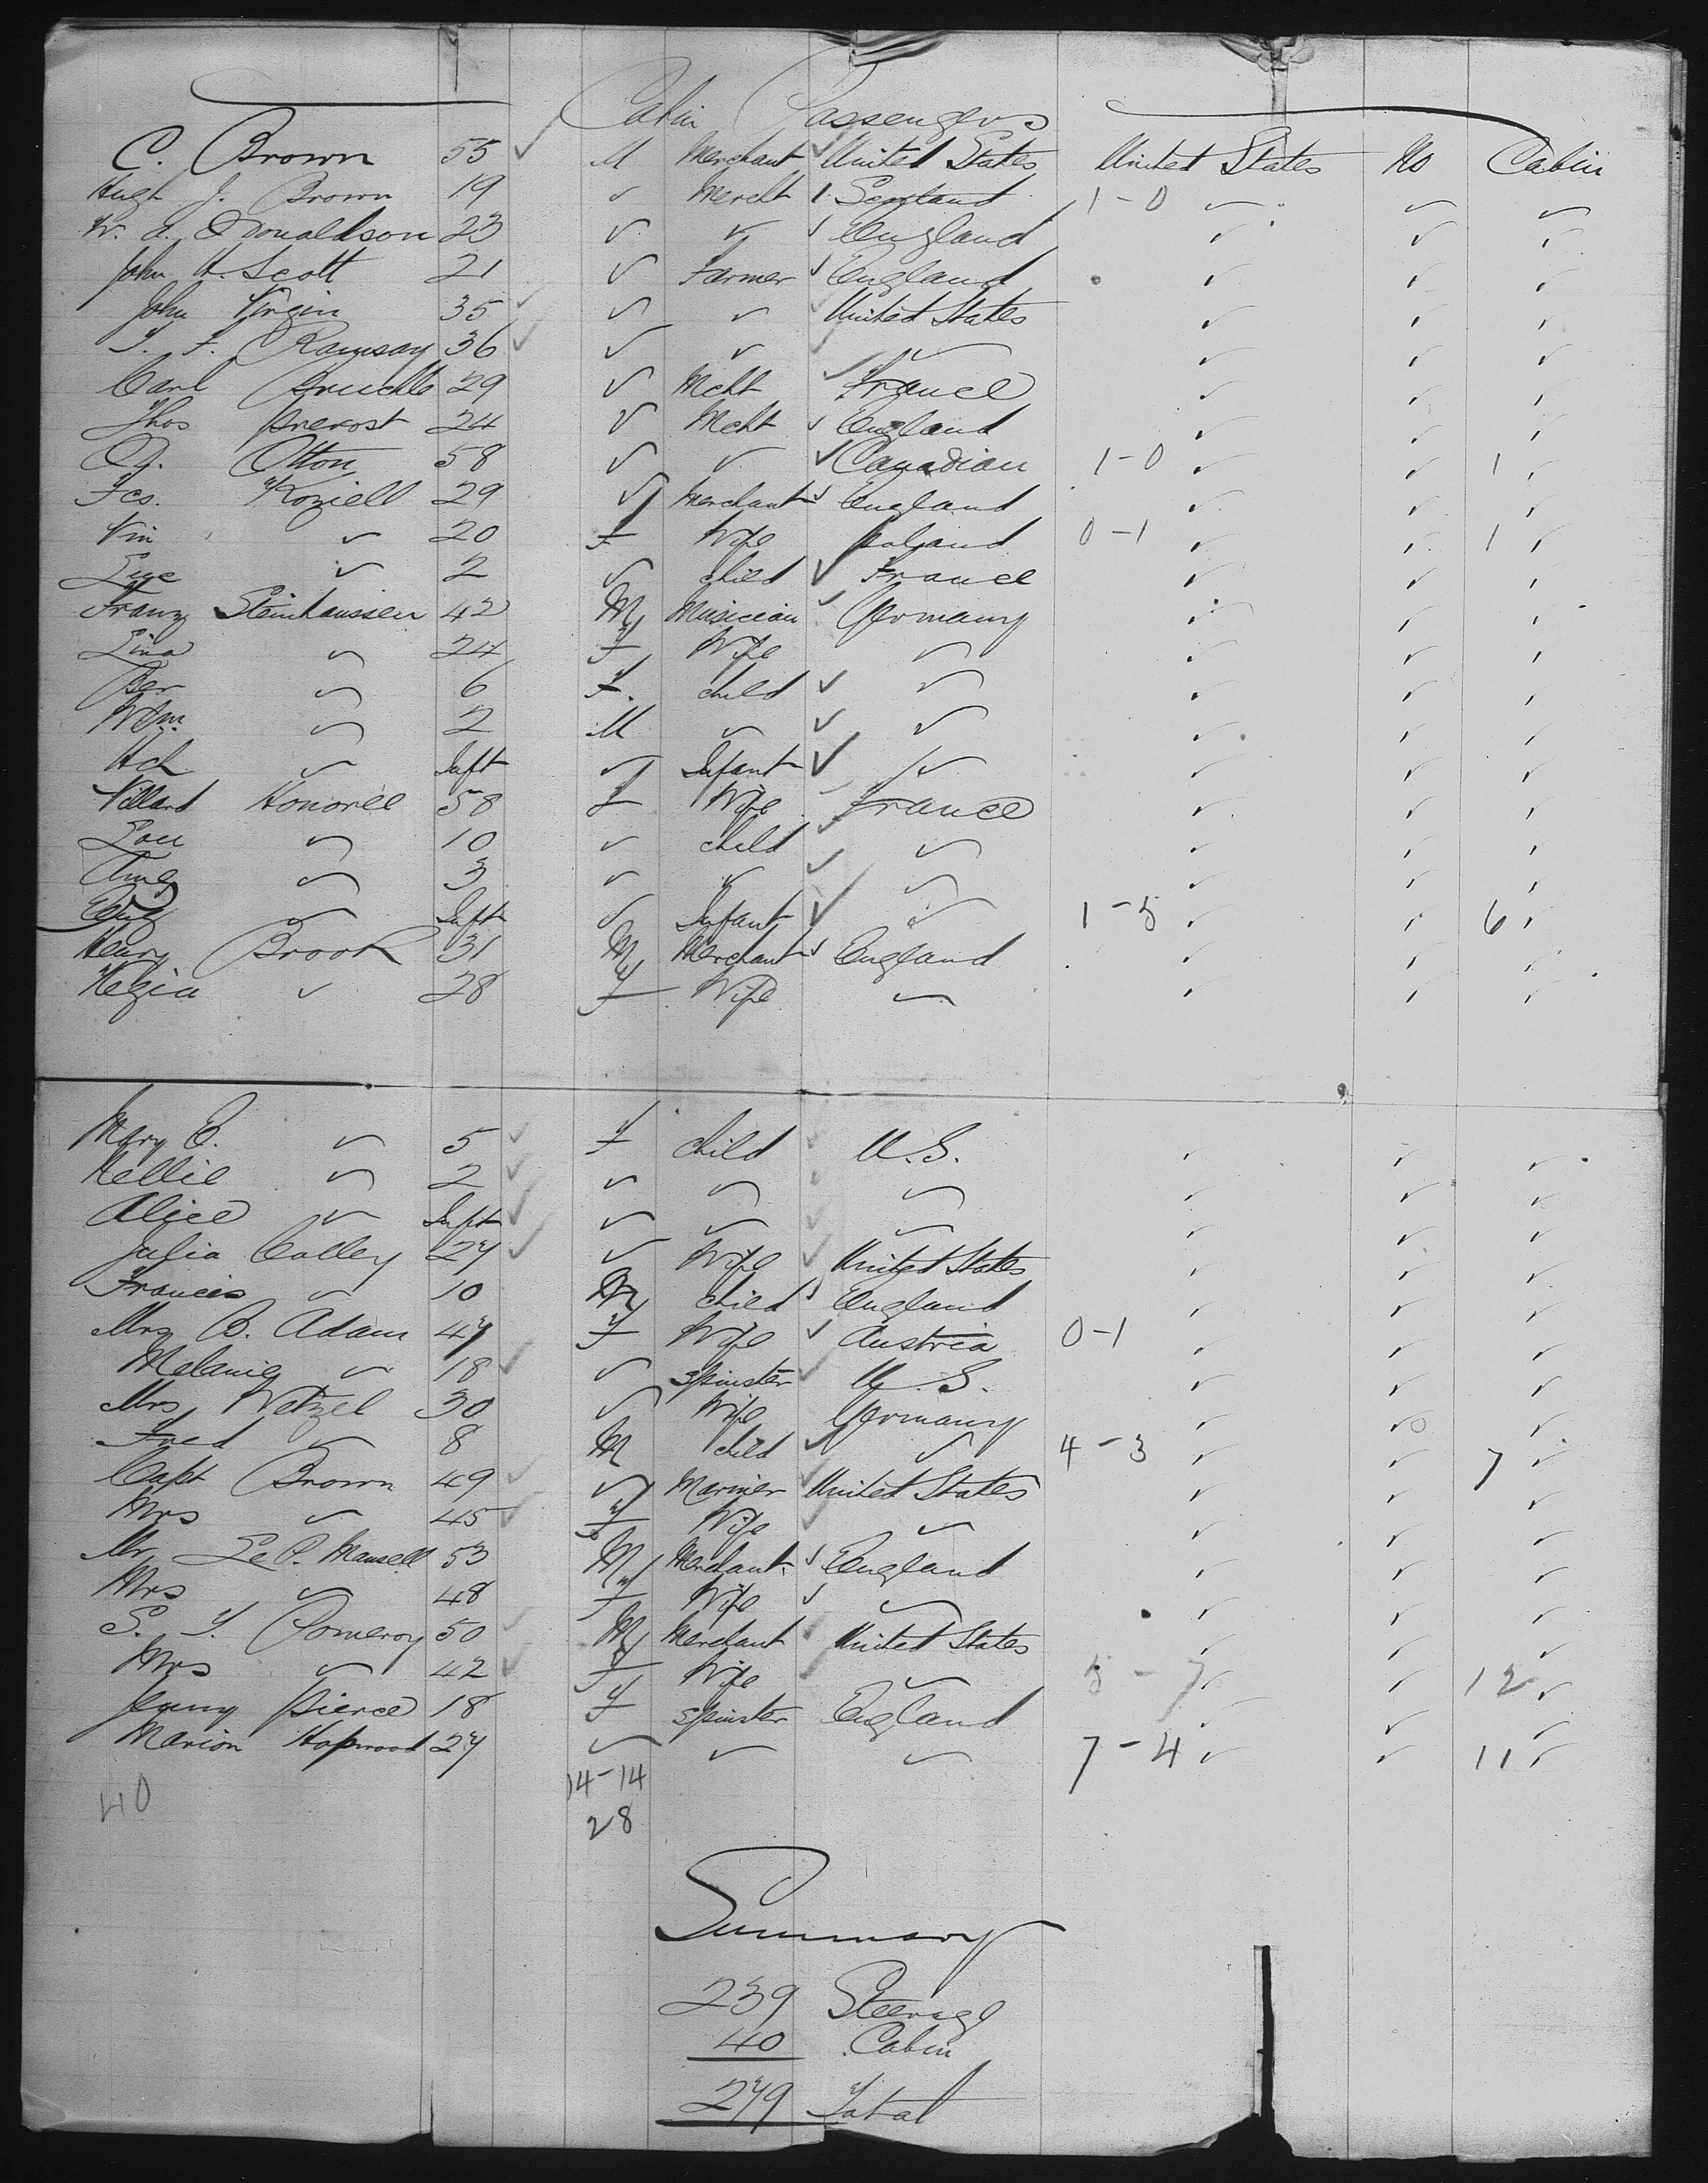 Cabin Passengers
C. Brown 55 ✓ M Merchant ✓ United States United States No Cabin
Hugh J. Brown 19 ✓ Mercht Scotland 1-0 ✓ ✓ ✓
W. A. Donaldson 23 ✓ ✓ ✓ England ✓ ✓ ✓
John H. Scott 21 ✓ Farmer ✓ England ✓ ✓ ✓
John Virgin 35 ✓ ✓ ✓ ✓ United States ✓ ✓ ✓
T. F. Ramsay 36 ✓ ✓ ✓ ✓ ✓ ✓ ✓ ✓
Carl 29 ✓ Mcht ✓ France ✓ ✓ ✓
Thos Prevost 24 ✓ Mcht ✓ England ✓ ✓ ✓
Otton 58 ✓ ✓ ✓ Canadian 1-0 ✓ ✓ 1 ✓
Fcs. Koziell 29 ✓ Merchant ✓ England ✓ ✓ ✓
Vin ✓ 20 F Wife Poland 0-1 ✓ ✓ 1 ✓
Eug ✓ 2 ✓ child ✓ France ✓ ✓ ✓
Franz Steinhaussen 42 M Musician ✓ Germany ✓ ✓ ✓
Lina ✓ 24 F Wife ✓ ✓ ✓ ✓
Ber ✓ 6 F. child ✓ ✓ ✓ ✓ ✓
Wm. ✓ 2 M ✓ ✓ ✓ ✓ ✓ ✓
Hch ✓ Inft ✓ Infant ✓ ✓ ✓ ✓ ✓
Villard Honoree 58 F Wife ✓ France ✓ ✓ ✓
Lou ✓ 10 ✓ child ✓ ✓ ✓ ✓ ✓
✓ 3 ✓ ✓ ✓ ✓ ✓ ✓ ✓
✓ Inft ✓ Infant ✓ ✓ 1-5 ✓ ✓ 6 ✓
Henry Brook 31 M Merchant ✓ England ✓ ✓ ✓
Kezia ✓ 28 F Wife ✓ ✓ ✓ ✓
Mary E. ✓ 5 ✓ F child ✓ U.S. ✓ ✓ ✓
Nellie ✓ 2 ✓ ✓ ✓ ✓ ✓ ✓ ✓
Alice ✓ Inft ✓ ✓ ✓ ✓ ✓ ✓ ✓ ✓
Julia Colley 27 ✓ ✓ Wife ✓ United States ✓ ✓ ✓
Francis ✓ 10 M child ✓ England ✓ ✓ ✓
Mrs B. Adam 47 F Wife ✓ Austria 0-1 ✓ ✓ ✓
Melanie ✓ 18 ✓ ✓ spinster ✓ U.S. ✓ ✓ ✓
Mrs Wetzel 30 ✓ Wife Germany ✓ ✓ ✓
Fred ✓ 8 M child ✓ ✓ 4-3 ✓ ✓ 7 ✓
Capt Brown 49 ✓ ✓ Mariner ✓ United States ✓ ✓ ✓
Mrs ✓ 45 ✓ F Wife ✓ ✓ ✓ ✓ ✓
Mr Le P. Mansell 53 M Merchant ✓ England ✓ ✓ ✓
Mrs ✓ 48 F Wife ✓ ✓ ✓ ✓ ✓
S. T. Pomeroy 50 ✓ M Merchant ✓ United States ✓ ✓ ✓
Mrs ✓ 42 ✓ F Wife ✓ ✓ 5-7 ✓ ✓ 12 ✓
Jenny Pierce 18 F spinster England ✓ ✓ ✓
Marion Hopwood 27 ✓ ✓ ✓ 7-4 ✓ ✓ 11 ✓
40 14-14
28
Summary
239 Steerage
40 Cabin
279 Total